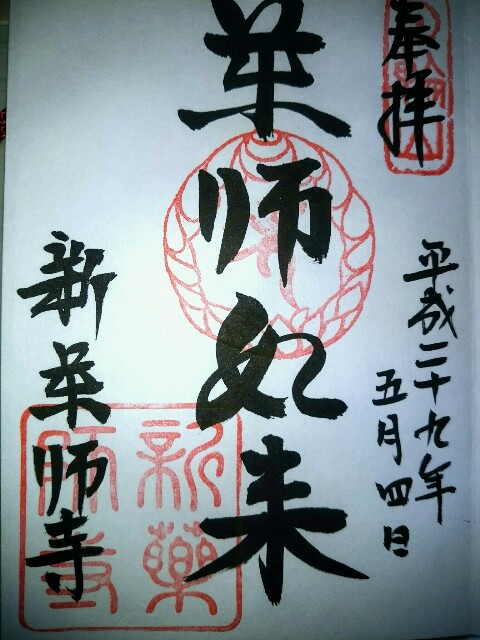 奉拝
平成二十九年
五月四日
薬師如来
新薬師寺
新薬
師寺